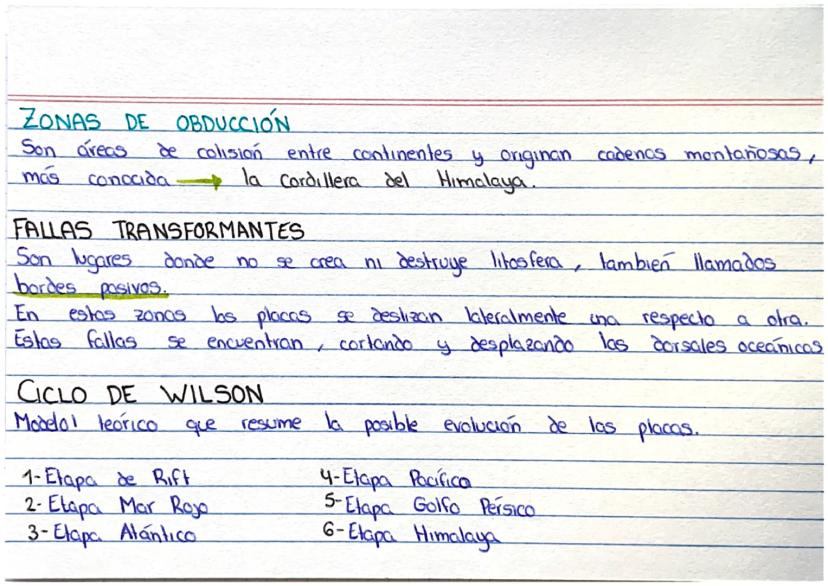 ZONAS DE OBDUCCIÓN
Son áreas de colisión entre continentes y originan cadenas montañosas,
más conocida → la cordillera del Himalaya.
FALLAS TRANSFORMANTES
Son lugares donde no se crea ni destruye litosfera, también llamados
bordes pasivos.
En estas zonas las placas se deslizan lateralmente una respecto a otra.
Estas fallas se encuentran, cortando y desplazando las dorsales oceánicas
CICLO DE WILSON
Modelo teórico que resume la posible evolución de las placas.
1-Etapa de Rift
2-Etapa Mar Rojo
3-Etapa Atlántico
4-Etapa Pacífica
5-Etapa Golfo Pérsico
6-Etapa Himalaya